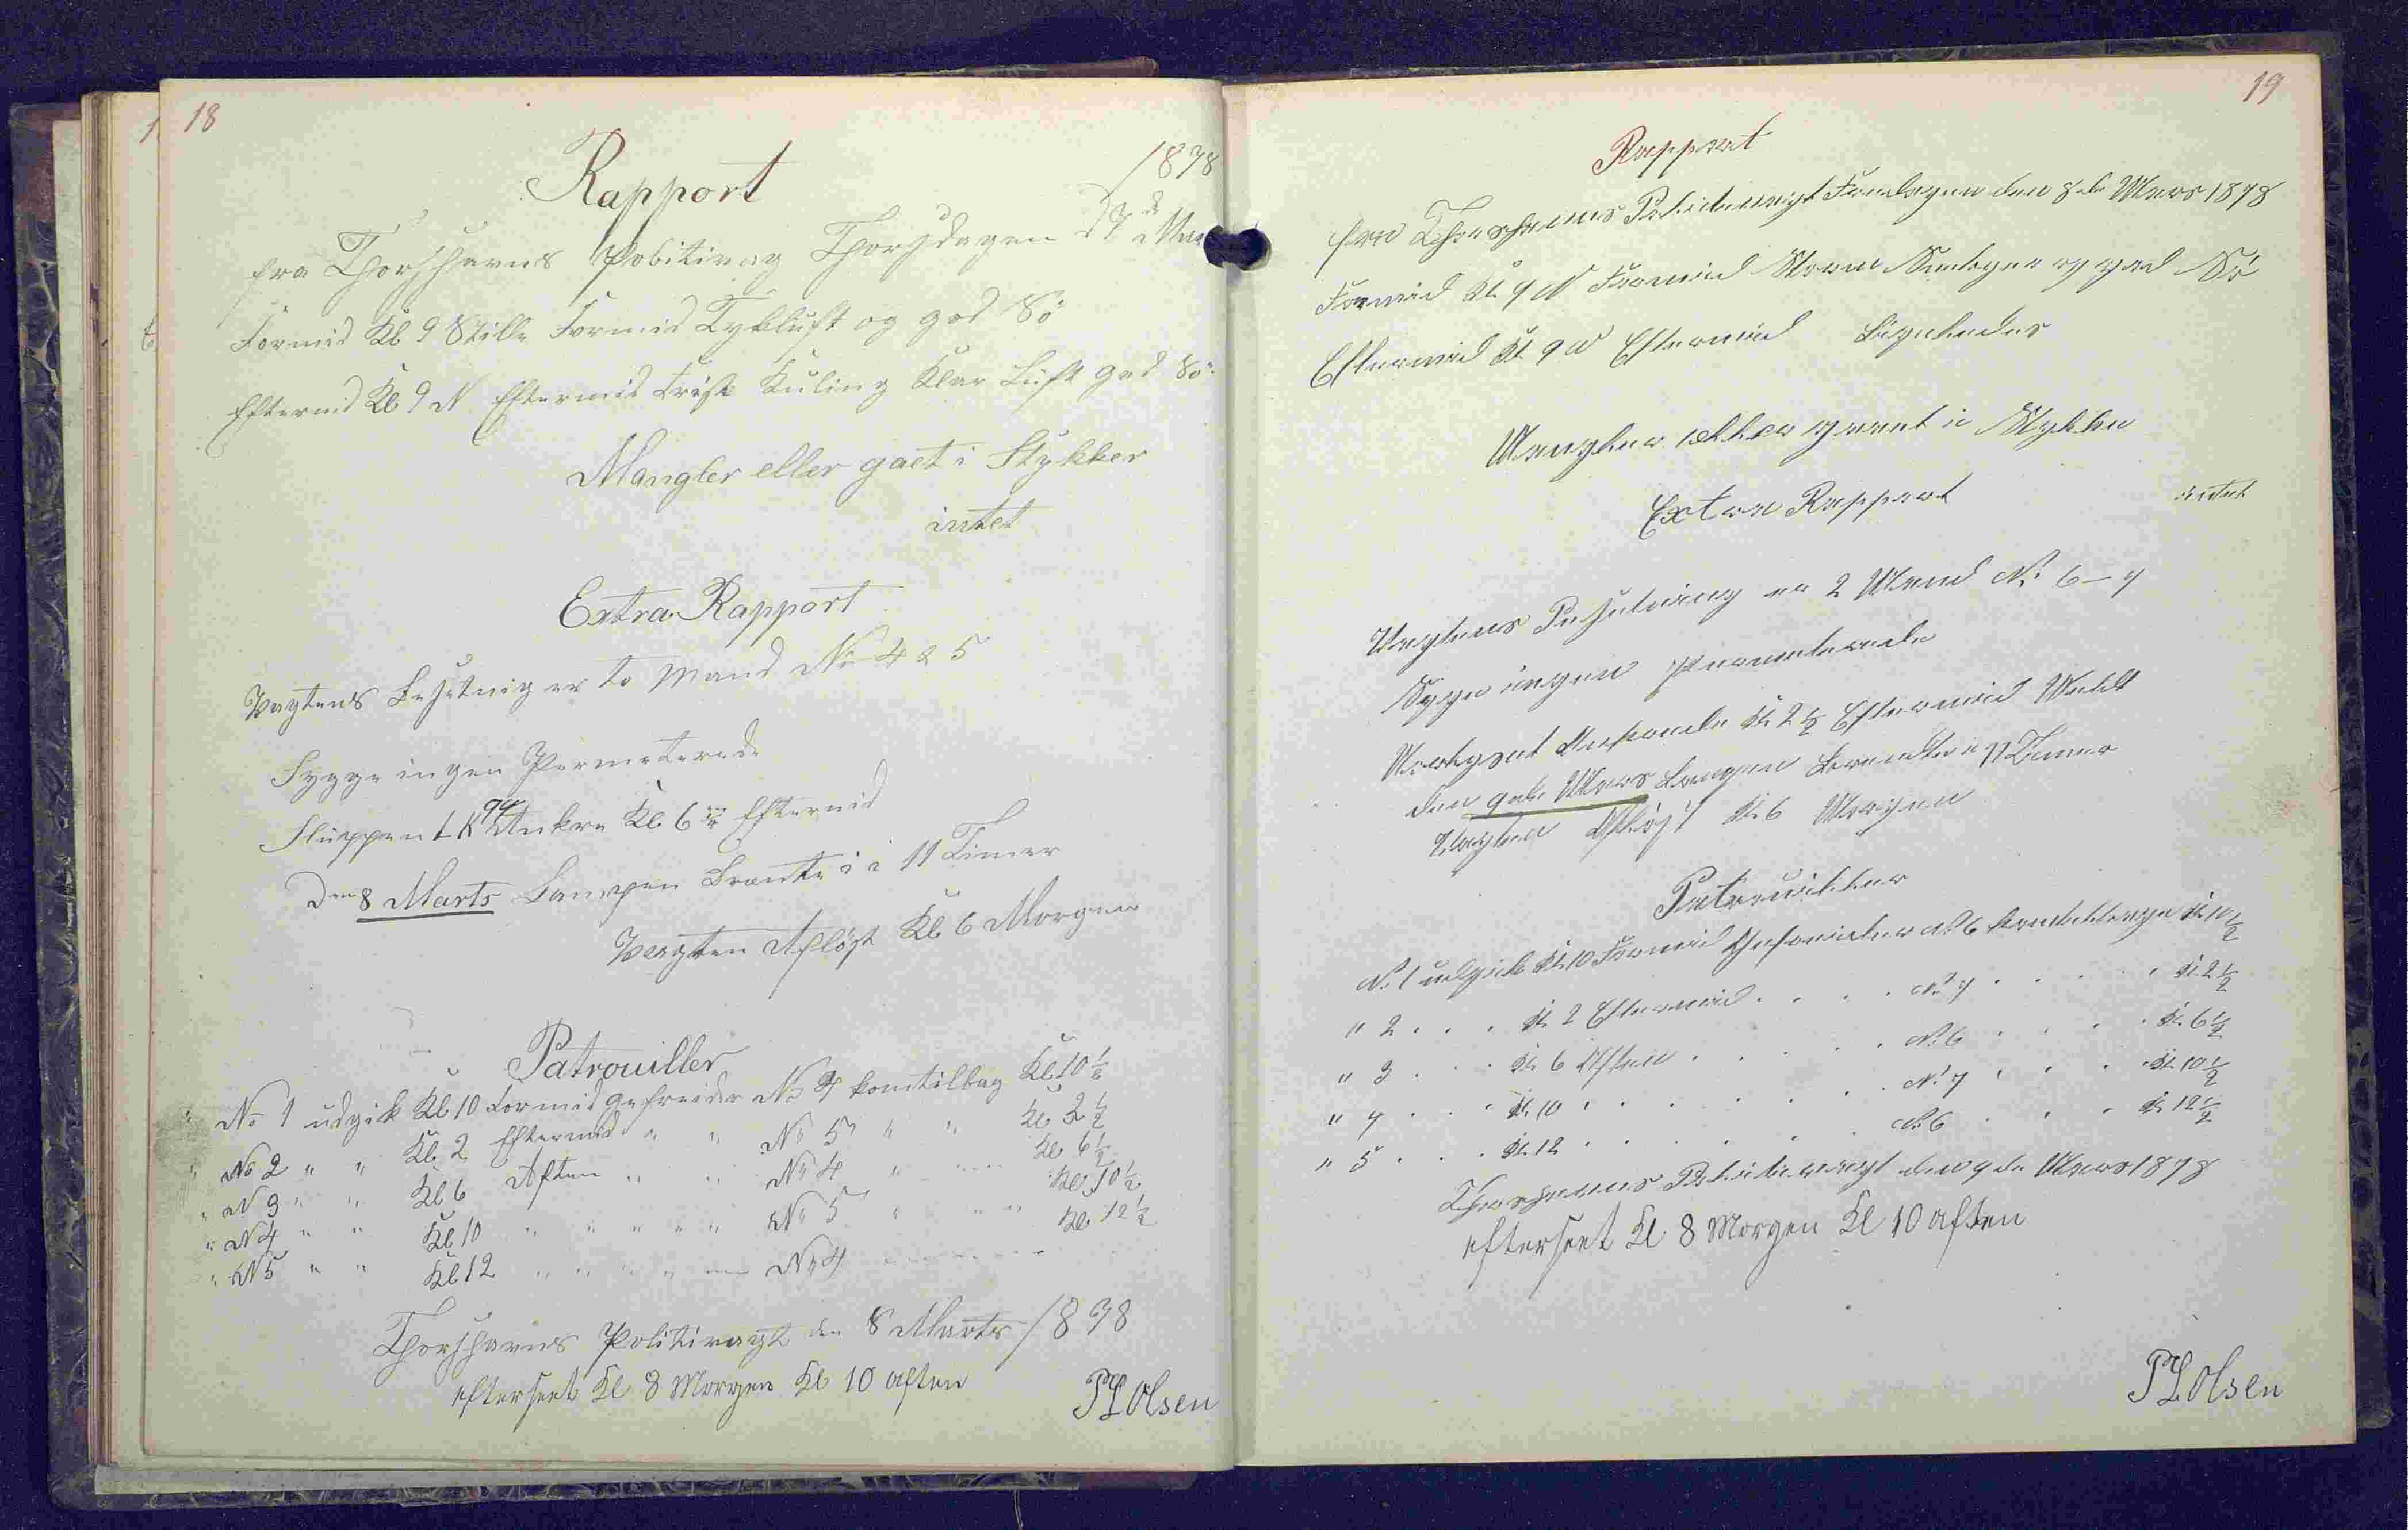 18
Rapport
1878
fra Thorshavns Politivagt Thorsdagen d 7de Mar
Formid Kl 9 Stille Formid Tykluft og god Sö
Eftermid Kl 9 N Eftermid Frisk Kuling Klar Luft god Sö
Mangler eller gaet i Stykker
intet
Extra Rapport
Vagtens Besetnig er to Mand No 4 & 5
Syge ingen Permeterede
Sluppen Ankre Kl 6 Eftermid
Den 8 Marts Lampen Brænte i 11 Timer
Vagten Aflöst Kl 6 Morgen
Patrouiller
No 1 udgik Kl 10 Formid gefreider No 4 kom tilbag Kl 10 1/2
" No 2 " " Kl 2 Eftermid " " No 5 " " Kl 2 1/2
" N 3 " " Kl 6 Aften " " No 4 " " Kl 6 1/2
" N 4 " " Kl 10 " " " " No 5 " " " Kl 10 1/2
" N 5 " " Kl 12 " " " " No 4 " " " Kl 12 1/2
Thorshavns Politivagt den 8 Marts 1878
efterseet Kl 8 Morgen Kl 10 aften
PL Olsen
19
Rapport
fra Thorshavns Politivagt Fredagen den 8de Mars 1878
Formid Kl 9 N Formid Storm Snebyer og god Sö
Eftermid Kl 9 N Eftermid Ligeledes
Mangler eller gaaet i Stykke
intet
Extra Rapport
Vagtens Besetning er 2 Mand No 6 - 7
Syge ingen Permeterede
Kl 2 1/2 Eftermid
den 9de Mars Lampen Brendte i 11 Timer
Vagten Aflöst Kl 6 Morgen
Patrouiller
No 1 udgik Kl 10 Formid Gefreider No 6 kom tilbage Kl 10 1/2
" 2 . . . Kl 2 Eftermid . . . . No 7 . . . . . Kl 2 1/2
" 3 . . . Kl 6 Aften . . . . . No 6 . . . . Kl 6 1/2
" 4 . . . Kl 10 . . . . . . . No 7 . . . . Kl 10 1/2
" 5 . . . Kl 12 . . . . . . No 6 . . . Kl 12 1/2
Thorshavns Politivagt den 9de Mars 1878
efterseet Kl 8 Morgen Kl 10 aften
PL Olsen